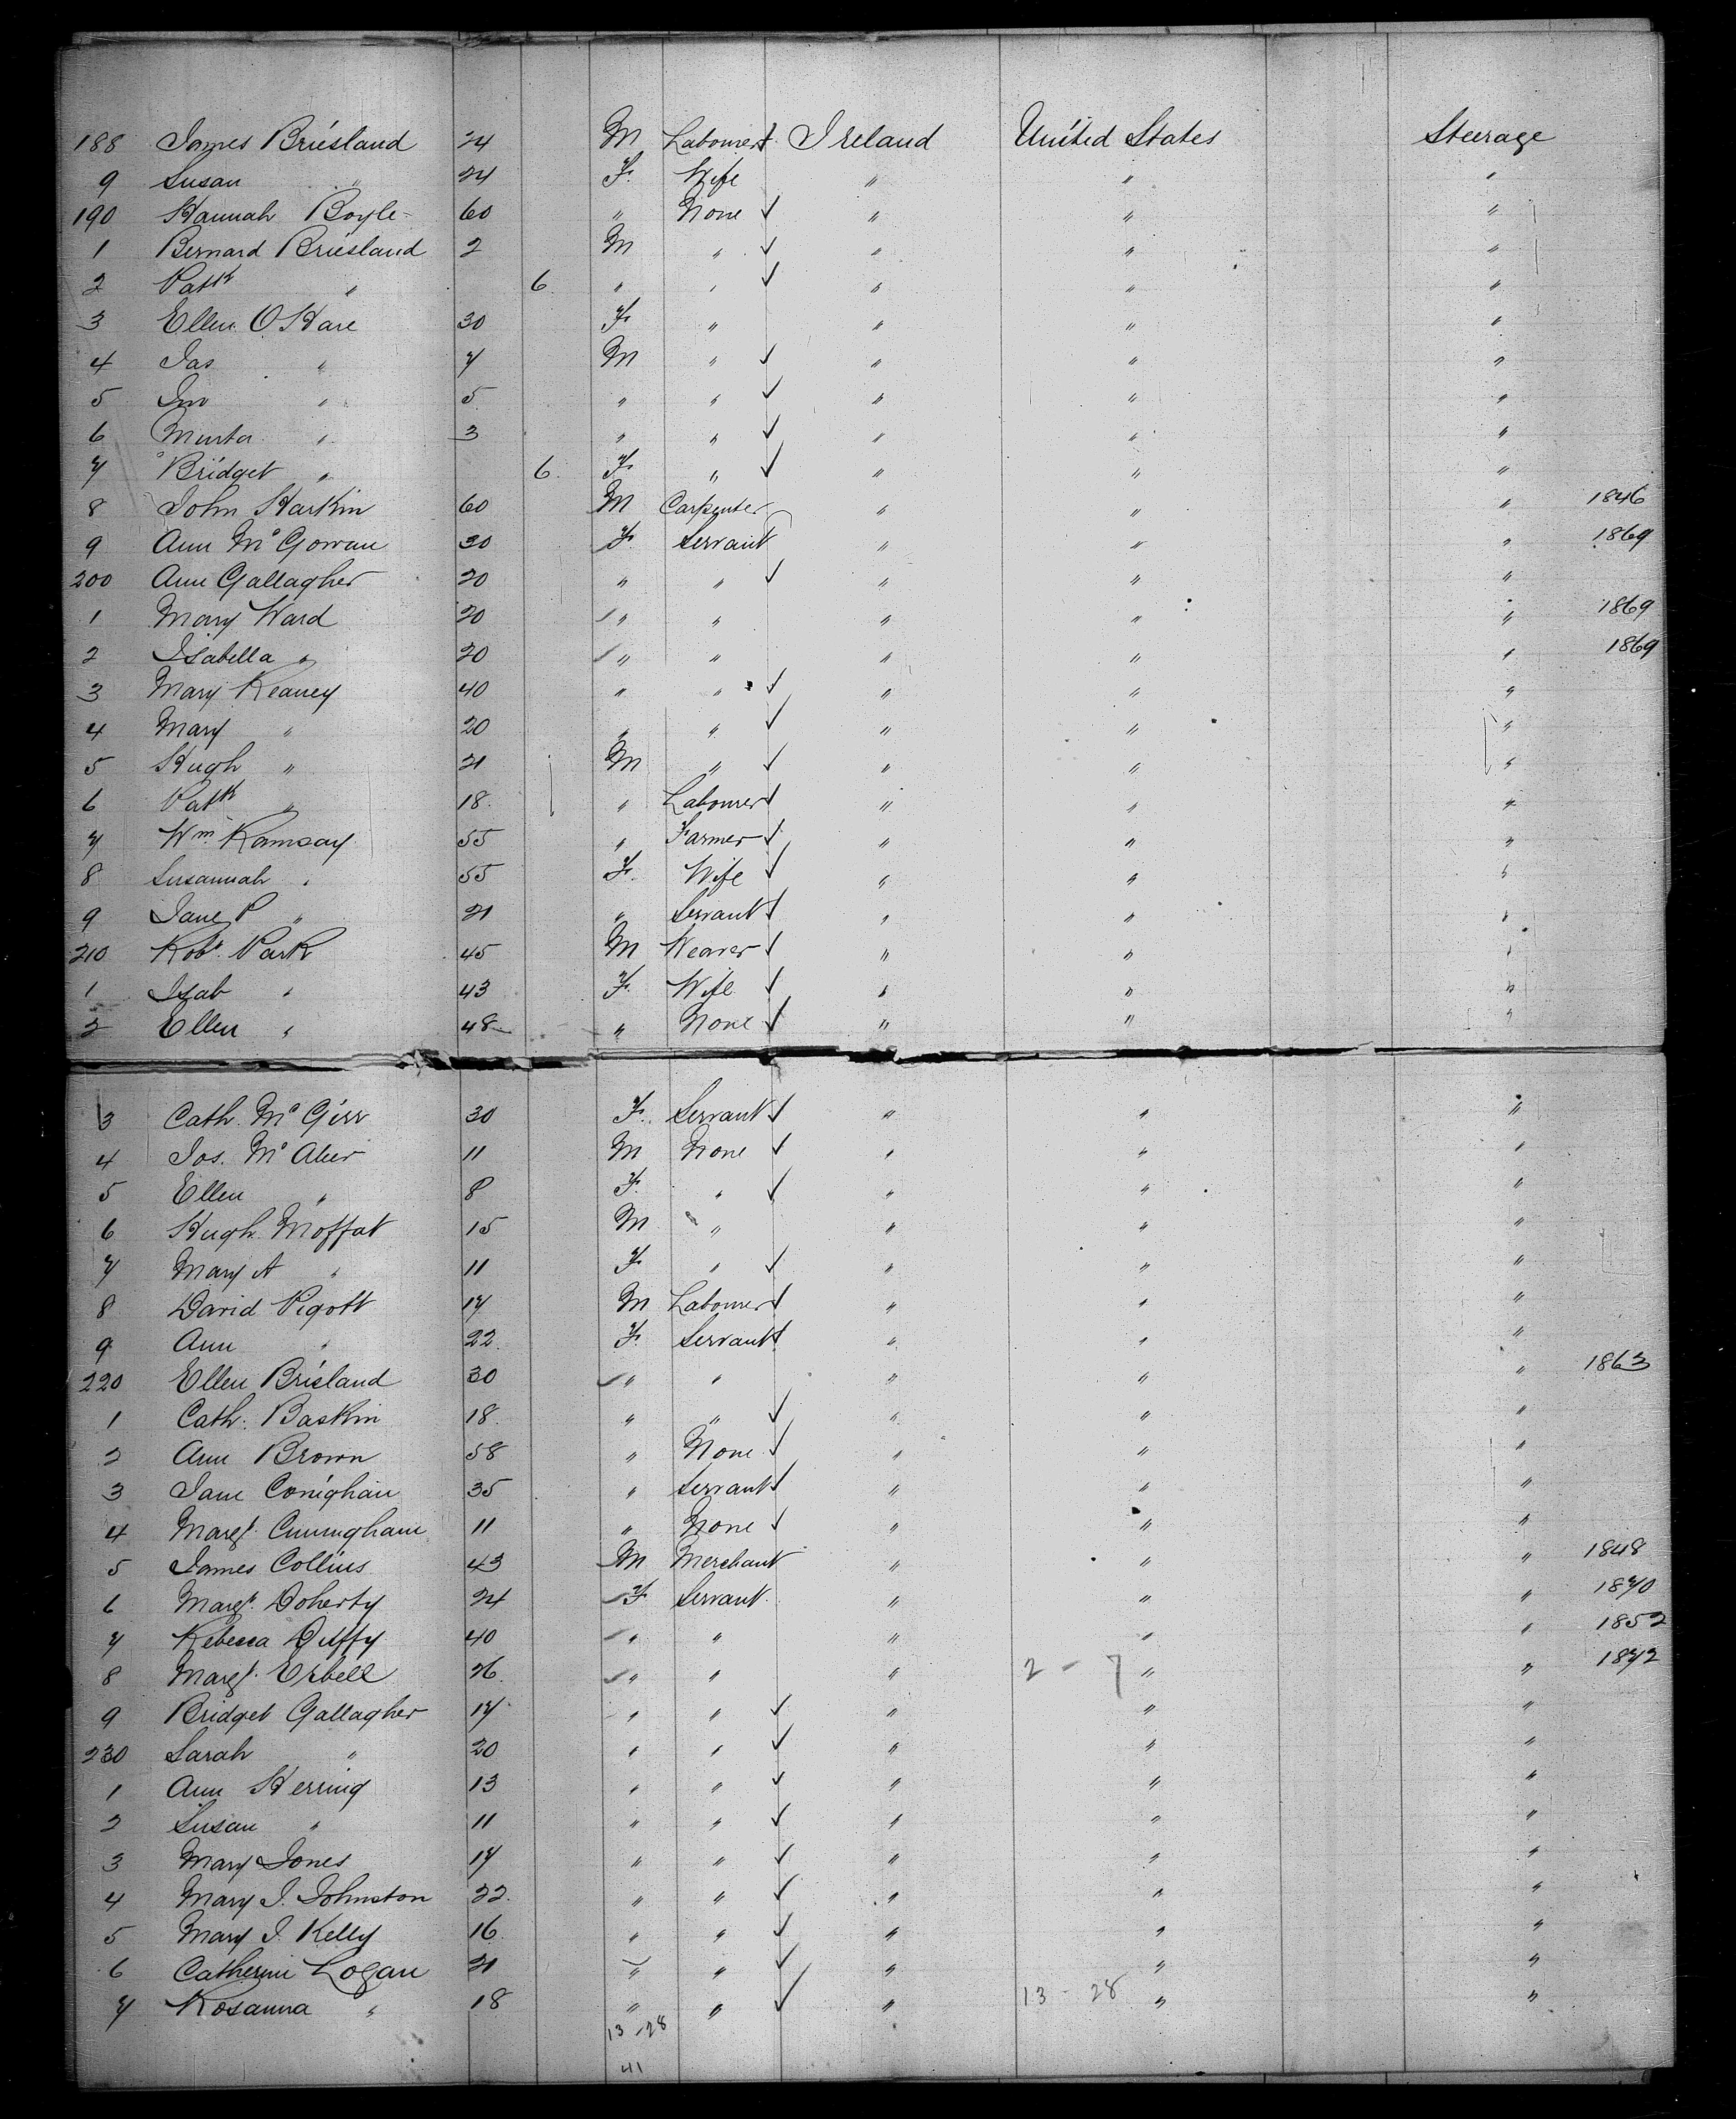 188 James Briesland 24 M Labourer Ireland United States Steerage
9 Susan " 24 F. Wife " " "
190 Hannah Boyle 60 " None " " "
1 Bernard Briesland 2 M " " " "
2 Patk " 6 " " " " "
3 Ellen O'Hare 30 F " " " "
4 Jas " 7 M " " " "
5 Jno " 5 " " " " "
6 " 3 " " " " "
7 Bridget " 6 F " " " "
8 John Harkin 60 M Carpenter " " " 1846
9 Ann McGowan 30 F Servant " " " 1869
200 Ann Gallagher 20 " " " " "
1 Mary Ward 20 " " " " " 1869
2 Isabella " 20 " " " " " 1869
3 Mary Keaney 40 " " " " "
4 Mary " 20 " " " " "
5 Hugh " 21 M " " " "
6 Patk " 18 " Labourer " " "
7 Wm. Ramsay 55 " Farmer " " "
8 Susannah " 55 F. Wife " " "
9 Jane P " 21 " Servant " " "
210 Robt. Park 45 M Weaver " " "
1 Isab " 43 F. Wife " " "
2 Ellen " 48 " None " " "
3 Cath. McGirr 30 F. Servant " " "
4 Jos. McAleer 11 M None " " "
5 Ellen " 8 F. " " " "
6 Hugh Moffat 15 M " " " "
7 Mary A " 11 F. " " " "
8 David Pigott 17 M Labourer " " "
9 Ann " 22 F. Servant " " "
220 Ellen Briesland 30 " " " " " 1863
1 Cath. Baskin 18 " " " " "
2 Ann Brown 58 " None " " "
3 Jane Conighan 35 " Servant " " "
4 Margt. Cunningham 11 " None " " "
5 James Collins 43 M Merchant " " " 1848
6 Margt. Doherty 24 F Servant " " " 1870
7 Rebecca Duffy 40 " " " " " 1852
8 Margt. Ezbell 26 " " " 2 - 7 " " 1872
9 Bridget Gallagher 17 " " " " "
230 Sarah " 20 " " " " "
1 Ann Herring 13 " " " " "
2 Susan " 11 " " " " "
3 Mary Jones 17 " " " " "
4 Mary J. Johnston 22 " " " " "
5 Mary J. Kelly 16 " " " " "
6 Catherine Logan 21 " " " " "
7 Rosanna " 18 " " " 13 - 28 " "
13 - 28
41